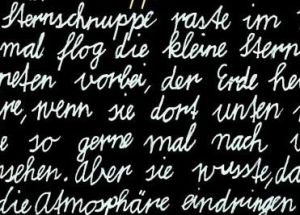 Sternschnuppe raste im
mal flog die kleine Stern
neten vorbei, der Erde he
re, wenn sie dort unten
e so gerne mal nach
nsehen. Aber sie wusste, da
die Atmosphäre eindringen